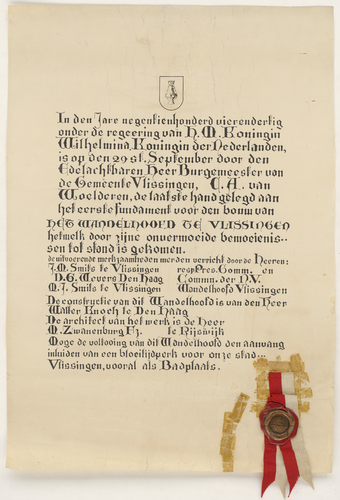 In den Jare negentienhonderd vierendertig
onder de regeering van H.M. Koningin
Wilhelmina, Koningin der Nederlanden,
is op den 29st. September door den
Edelachtbaren Heer Burgemeester van
de Gemeente Vlissingen, C.A. van
Woelderen, de laatste hand gelegd aan
het eerste fundament voor den bouw van
HET WANDELHOOFD TE VLISSINGEN
hetwelk door zijne onvermoeide bemoeienis-
sen tot stand is gekomen.
de uitvoerende werkzaamheden werden verricht door de Heeren:
J.M. Smits te Vlissingen resp. Pres. Comm. en
D.G. Wevers Den Haag Comm. der N.V.
M.J. Smits te Vlissingen Wandelhoofd Vlissingen
De constructie van dit Wandelhoofd is van den Heer
Walter Knoch te Den Haag
De architect van het werk is de Heer
M. Zwanenburg Fz. te Rijswijk
Moge de voltooing van dit Wandelhoofd den aanvang
inluiden van een bloeitijdperk voor onze stad
Vlissingen, vooral als Badplaats.